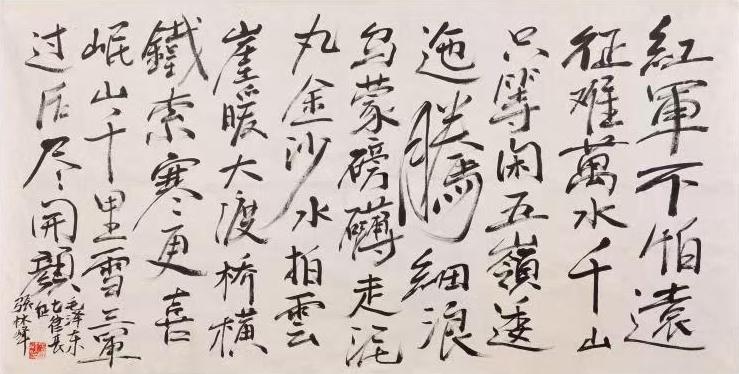 紅軍不怕遠
征难萬水千山
只等闲五嶺逶
迤騰細浪
乌蒙磅礴走泥
丸金沙水拍雲
崖暖大渡桥横
鐵索寒更喜
岷山千里雪三軍
过后尽開顏
毛澤东
七律長
征
張林